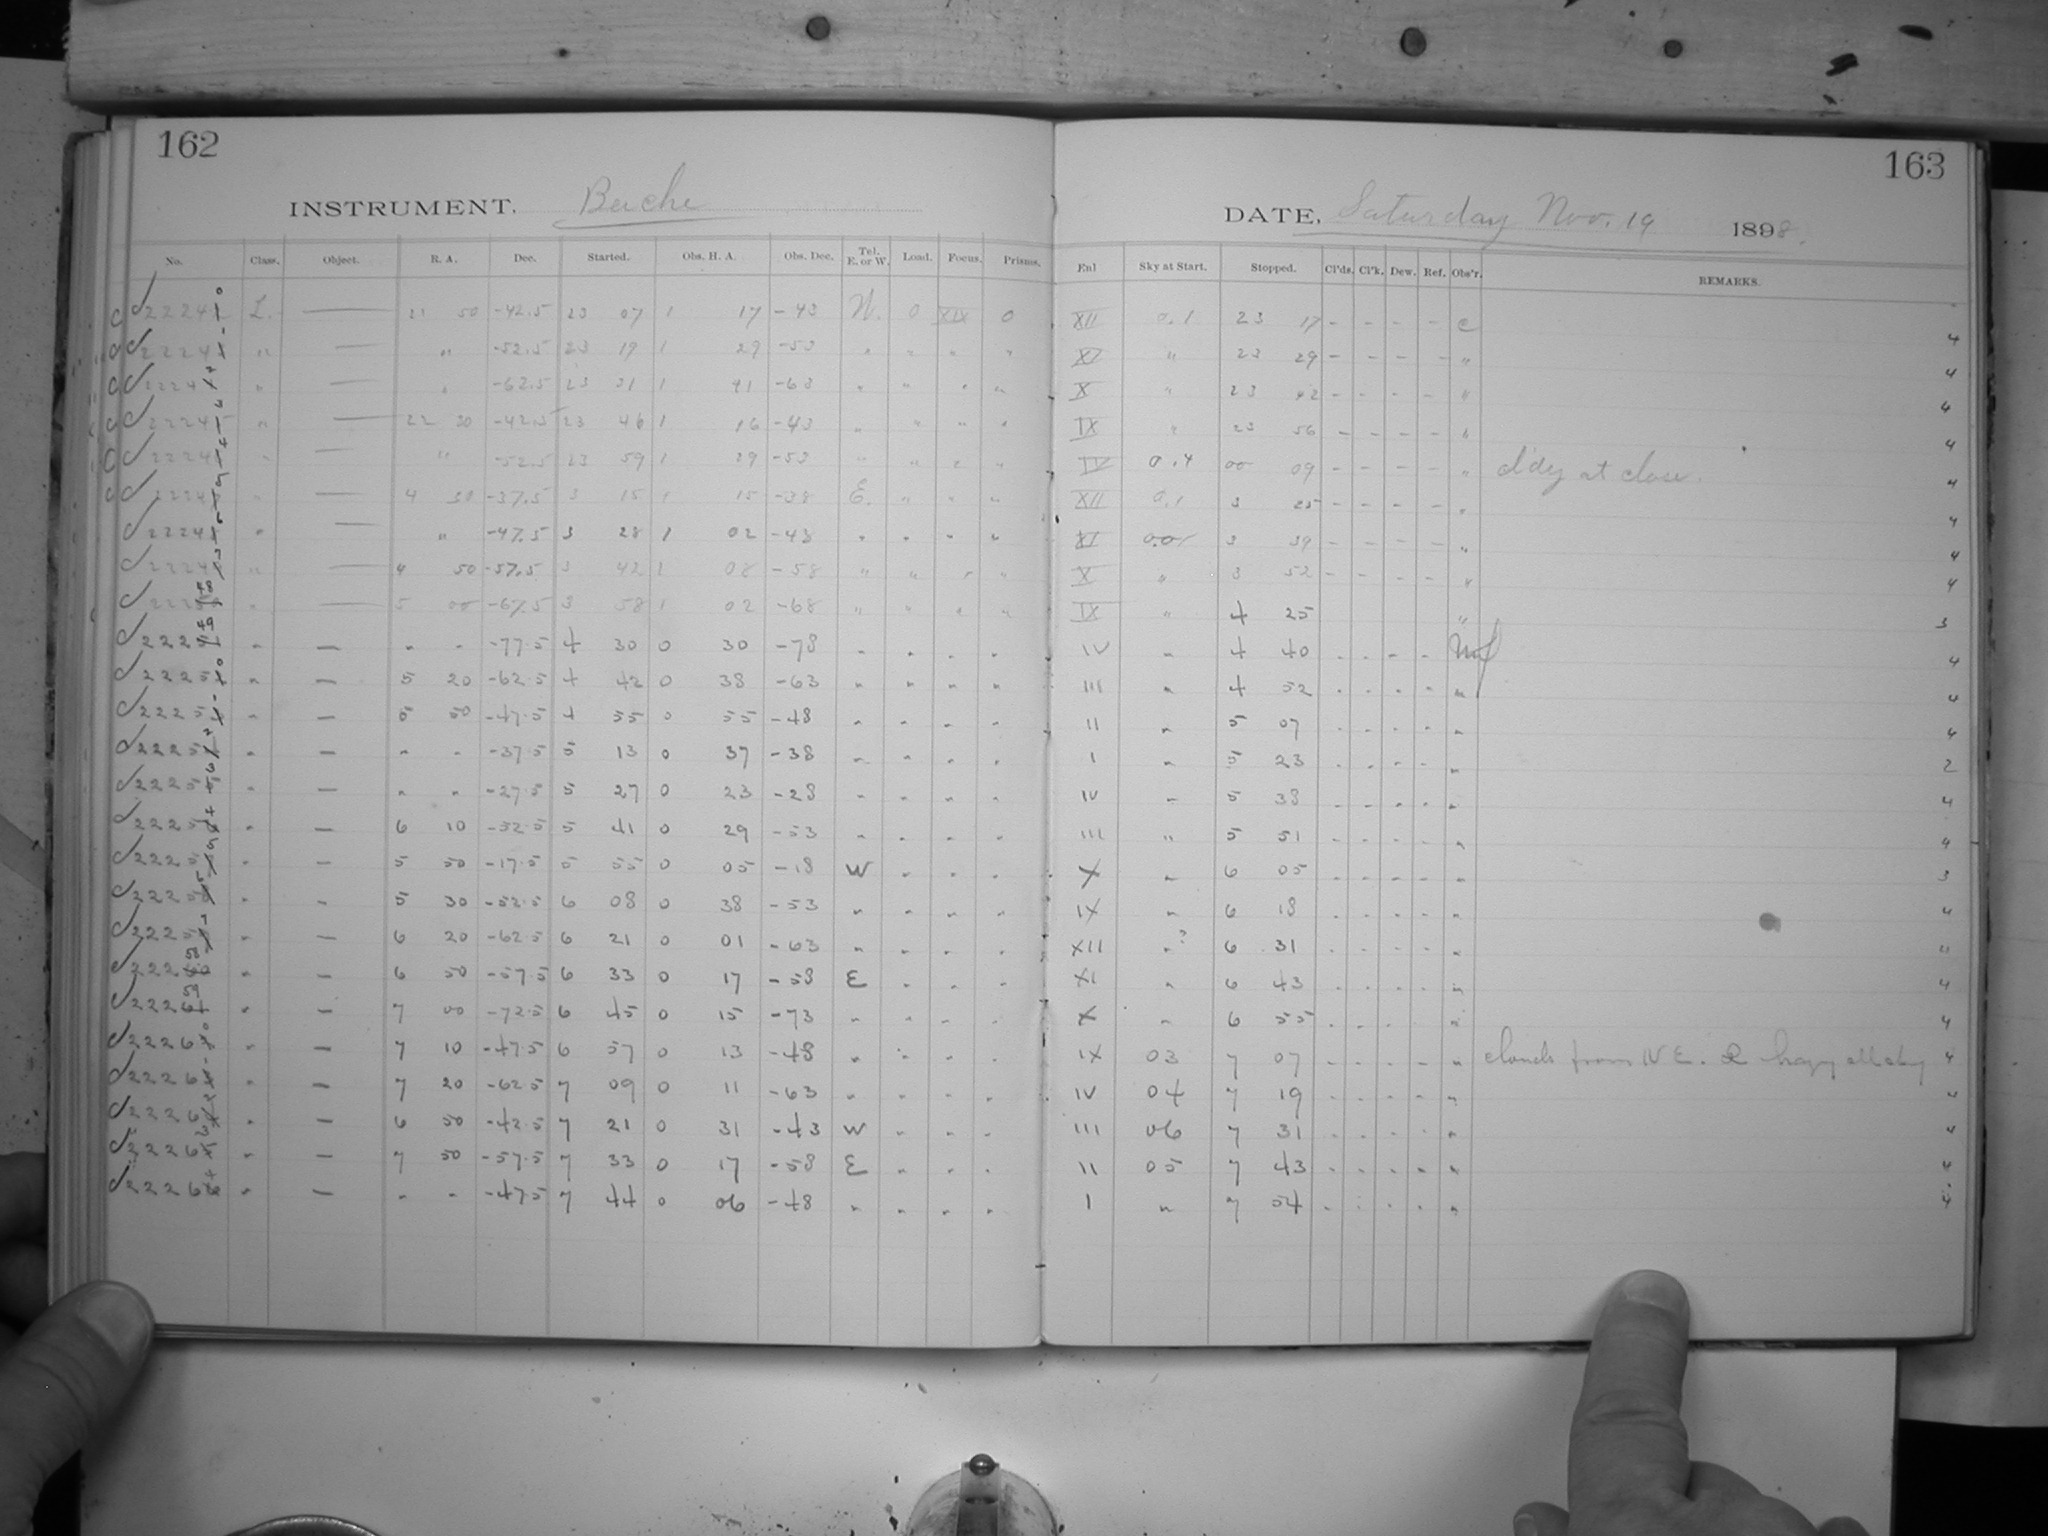 162
INSTRUMENT. Bache
No. Class. Object. R. A. Dec. Started. Obs. H. A. Obs. Dec. Tel. E. or W. Load. Focus. Prisms.
L. — 21 50 -42.5 23 07 1 17 -43 W. 0 XIX 0
— " -52.5 23 19 1 29 -53 " " " "
— " -62.5 23 31 1 41 -63 " " " "
— 22 20 -42.5 23 46 1 16 -43 " " " "
— " -52.5 23 59 1 29 -53 " " " "
— 4 30 -37.5 3 15 1 15 -38 E. " " "
— " -47.5 3 28 1 02 -48 " " " "
— 4 50 -57.5 3 42 1 08 -58 " " " "
— 5 00 -67.5 3 58 1 02 -68 " " " "
— " " -77.5 4 30 0 30 -78 " " " "
— 5 20 -62.5 4 42 0 38 -63 " " " "
— 5 50 -47.5 4 55 0 55 -48 " " " "
— " " -37.5 5 13 0 37 -38 " " " "
— " " -27.5 5 27 0 23 -28 " " " "
— 6 10 -52.5 5 41 0 29 -53 " " " "
— 5 50 -17.5 5 55 0 05 -18 W " " "
— 5 30 -52.5 6 08 0 38 -53 " " " "
— 6 20 -62.5 6 21 0 01 -63 " " " "
— 6 50 -57.5 6 33 0 17 -58 E " " "
— 7 00 -72.5 6 45 0 15 -73 " " " "
— 7 10 -47.5 6 57 0 13 -48 " " " "
— 7 20 -62.5 7 09 0 11 -63 " " " "
— 6 50 -42.5 7 21 0 31 -43 W " " "
— 7 50 -57.5 7 33 0 17 -58 E " " "
— " " -47.5 7 44 0 06 -48 " " " "
163
DATE, Saturday Nov. 19 1898.
Enl Sky at Start. Stopped. Cl'ds. Cl'k. Dew. Ref. Obs'r. REMARKS.
XII 0.1 23 17 - - - - C 4
XI " 23 29 - - - - " 4
X " 23 42 - - - - " 4
IX " 23 56 - - - - " 4
IV 0.4 00 09 - - - - " cl'dy at close. 4
XII 0.1 3 25 - - - - " 4
XI 0.01 3 39 - - - - " 4
X " 3 52 - - - - " 4
IX " 4 25 " 3
IV " 4 40 - - - - 4
III " 4 52 - - - - " 4
II " 5 07 - - - - " 4
I " 5 23 - - - - " 2
IV " 5 38 - - - - " 4
III " 5 51 - - - - " 4
X " 6 05 - - - - " 3
IX " 6 18 - - - - " 4
XII "? 6 31 - - - - " "
XI " 6 43 - - - - " 4
X " 6 55 - - - - " 4
IX 03 7 07 - - - - " clouds from NE. & hazy all sky 4
IV 04 7 19 - - - - " 4
III 06 7 31 - - - - " 4
II 05 7 43 - - - - " 4
I " 7 54 - - - - " 4